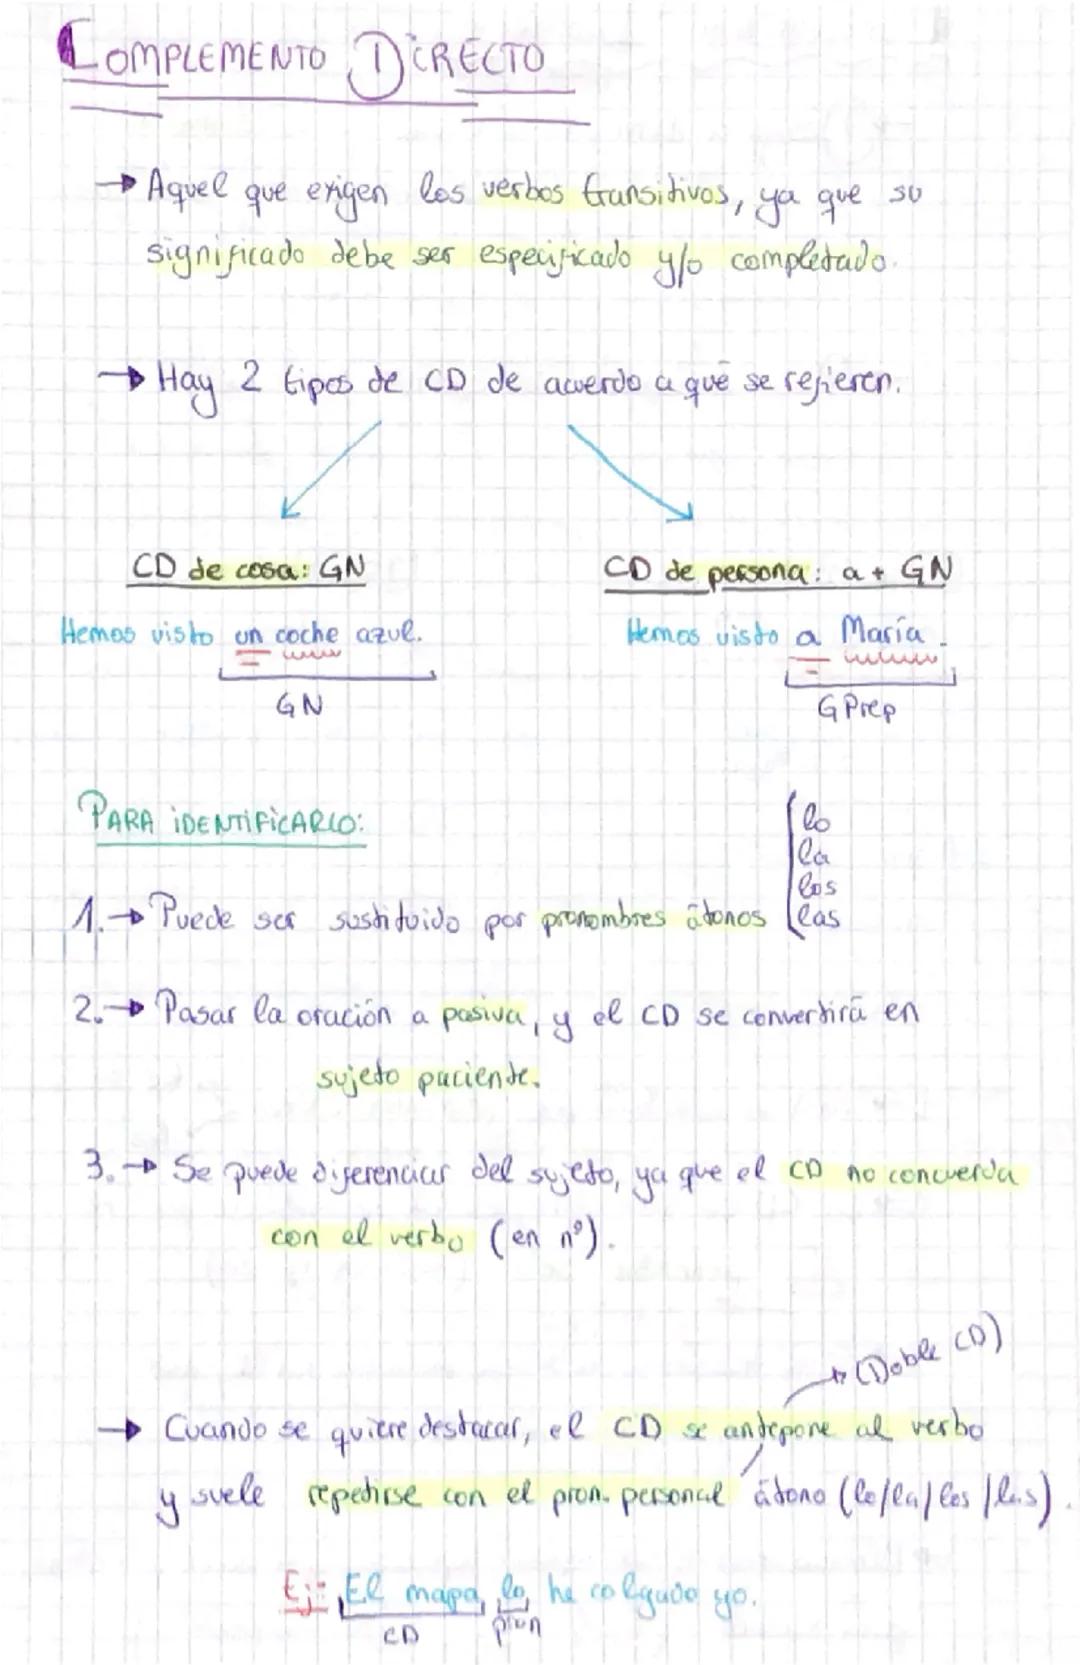 COMPLEMENTO DIRECTO
→ Aquel que exigen los verbos transitivos, ya que su
significado debe ser especificado y/o completado.
→ Hay 2 tipos de CD de acuerdo a qué se refieren.
CD de cosa: GN
CD de persona: a + GN
Hemos visto un coche azul.
Hemos visto a María.
GN
GPrep
PARA IDENTIFICARLO:
lo
la
los
1.→ Puede ser sustituido por pronombres átonos las
2.→ Pasar la oración a pasiva, y el CD se convertirá en
sujeto paciente.
3.→ Se puede diferenciar del sujeto, ya que el CD no concuerda
con el verbo (en nº).
→ (Doble CD)
→ Cuando se quiere destacar, el CD se antepone al verbo
y suele repetirse con el pron. personal átono (lo/la/los/las).
Ej: El mapa, lo he colgado yo.
CD pron